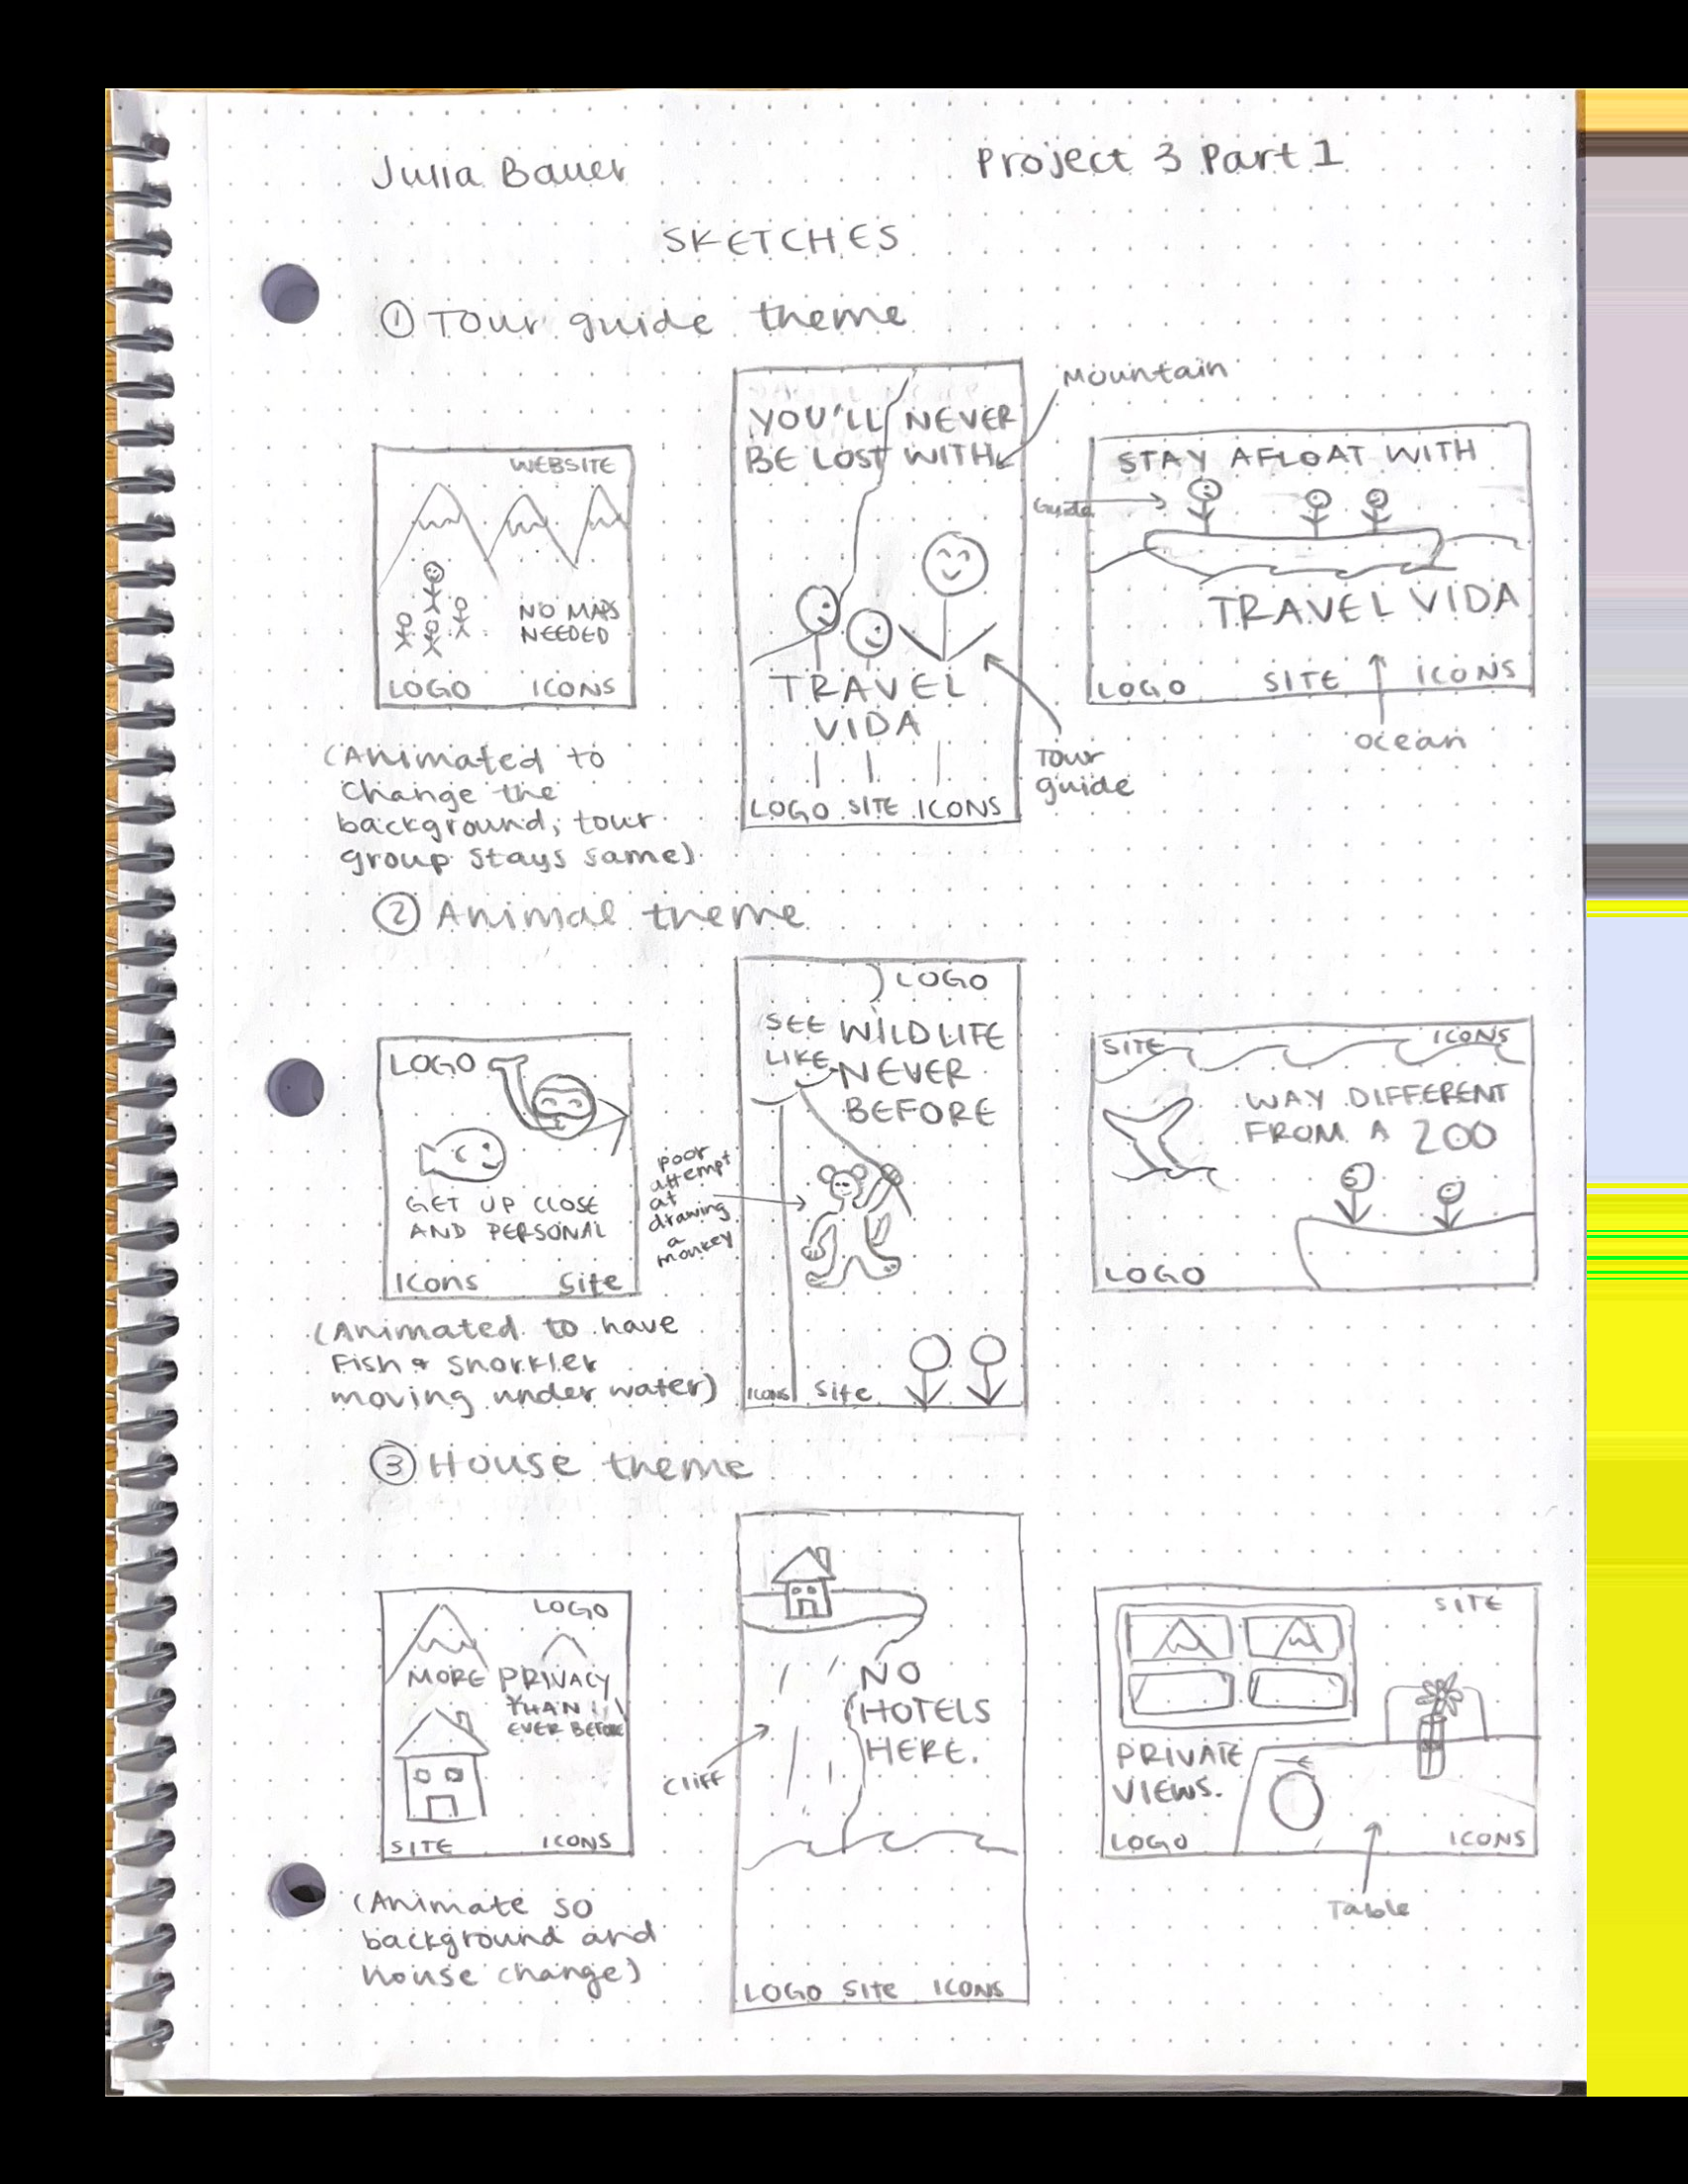 Julia Bauer
Project 3 Part 1
SKETCHES
① Tour guide theme
WEBSITE
NO MAPS
NEEDED
LOGO ICONS
(Animated to
change the
background, tour
group stays same)
YOU'LL NEVER
BE LOST WITH
TRAVEL
VIDA
LOGO SITE ICONS
Mountain
Tour
guide
STAY AFLOAT WITH
Guide
TRAVEL VIDA
LOGO SITE ICONS
ocean
② Animal theme
LOGO
GET UP CLOSE
AND PERSONAL
Icons Site
(Animated to have
Fish & snorkler
moving under water)
LOGO
SEE WILDLIFE
LIKE NEVER
BEFORE
poor
attempt
at
drawing
a
monkey
ICONS Site
SITE ICONS
WAY DIFFERENT
FROM A ZOO
LOGO
③ House theme
LOGO
MORE PRIVACY
THAN
EVER BEFORE
SITE ICONS
(Animate so
background and
house change)
NO
HOTELS
HERE.
Cliff
LOGO SITE ICONS
SITE
PRIVATE
VIEWS.
LOGO ICONS
Table